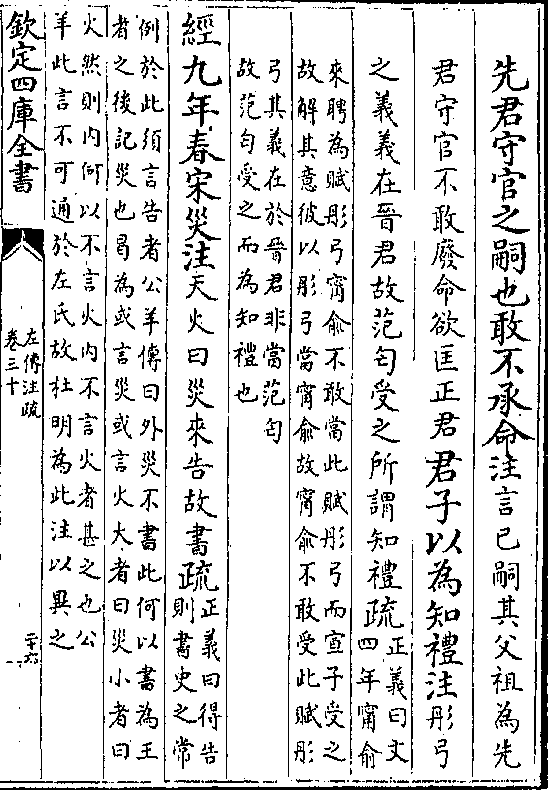 先君守官之嗣也敢不承命注言已嗣其父祖為先
君守官不敢廢命欲匡正君君子以為知禮注彤弓
之義義在晉君故范匄受之所謂知禮疏正義曰文
四年甯俞
來聘為賦彤弓甯俞不敢當此賦彤弓而宣子受之
故解其意彼以彤弓當甯俞故甯俞不敢受此賦彤
弓其義在於晉君非當范匄
故范匄受之而為知禮也
經九年春宋災注天火曰災來告故書疏正義曰得告
則書史之常
例於此須言告者公羊傳曰外災不書此何以書為王
者之後記災也曷為或言災或言火大者曰災小者曰
火然則内何以不言火内不言火者甚之也公
羊此言不可通於左氏故杜明為此注以異之
欽定四庫全書
左傳注疏
卷三十
二十六